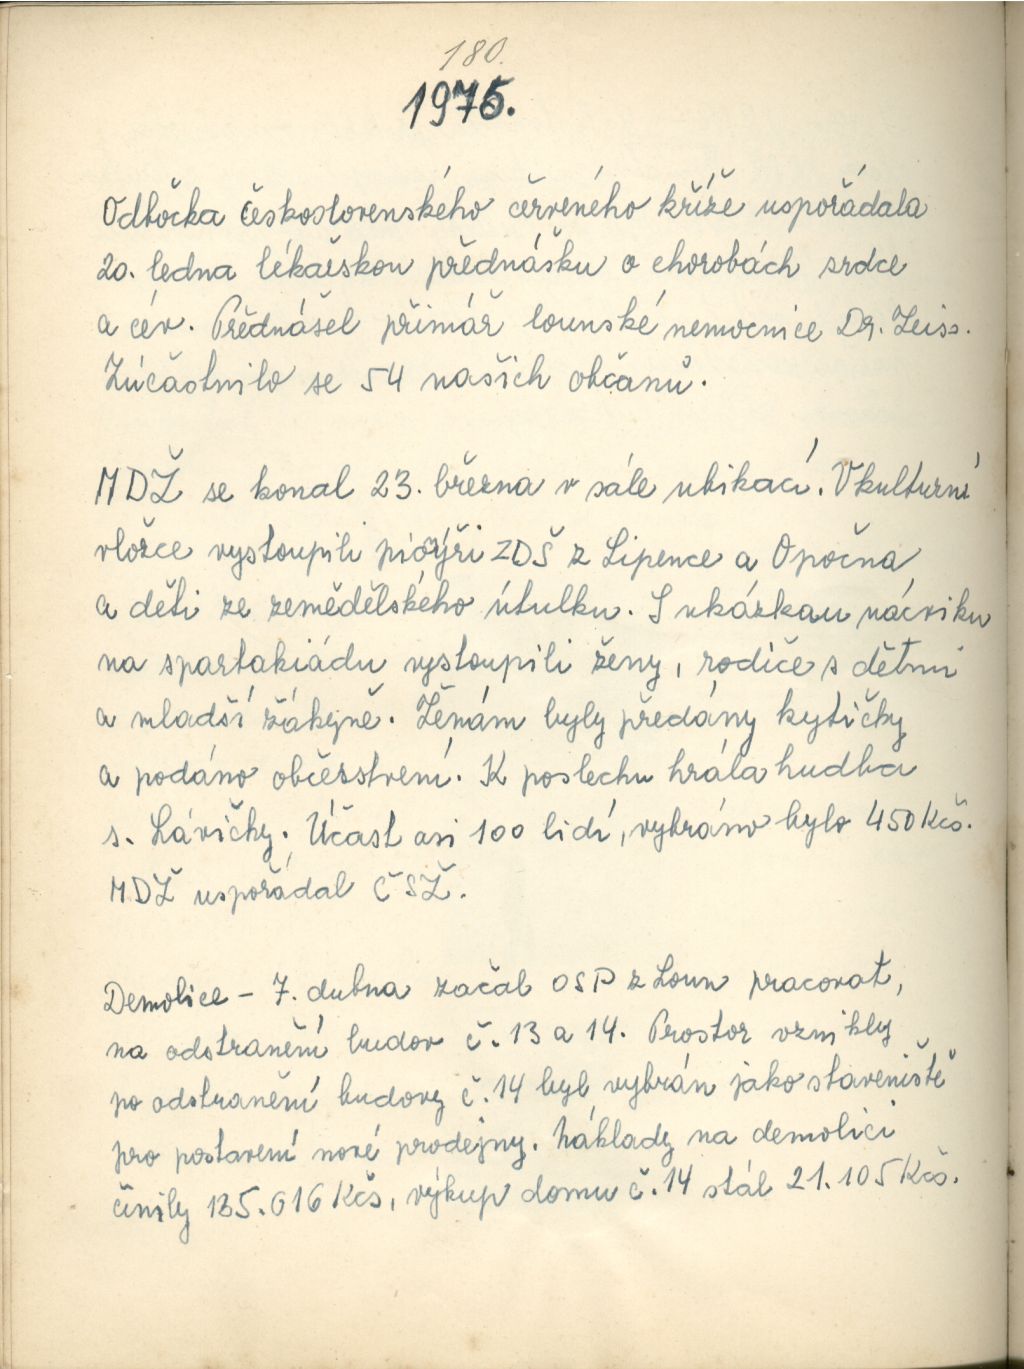 180.
1975.
Odbočka československého červeného kříže uspořádala
20. ledna lékařskou přednášku o chorobách srdce
a cév. Přednášel přimář lounské nemocnice Dr. Zeiss.
Zúčastnilo se 54 našich občanů.
MDŽ se konal 23. března v sále ubikací. V kulturní
vložce vystoupili pionýři ZDŠ z Lipence a Opočna
a děti ze zemědělského útulku. S ukázkau nácviku
na spartakiádu vystoupili ženy, rodiče s dětmi
a mladší žákyně. Ženám byly předány kytičky
a podáno občerstvení. K poslechu hrála hudba
s. Lávičky. Účast asi 100 lidí, vybráno bylo 450 Kčs.
MDŽ uspořádal ČSŽ.
Demolice - 7. dubna začal OSP z Loun pracovat,
na odstranění budov č. 13 a 14. Prostor vzniklý
po odstranění budovy č. 14 byl vybrán jako staveniště
pro postavení nové prodejny. Náklady na demolici
činily 135.016 Kčs, výkup domu č. 14 stál 21.105 Kčs.